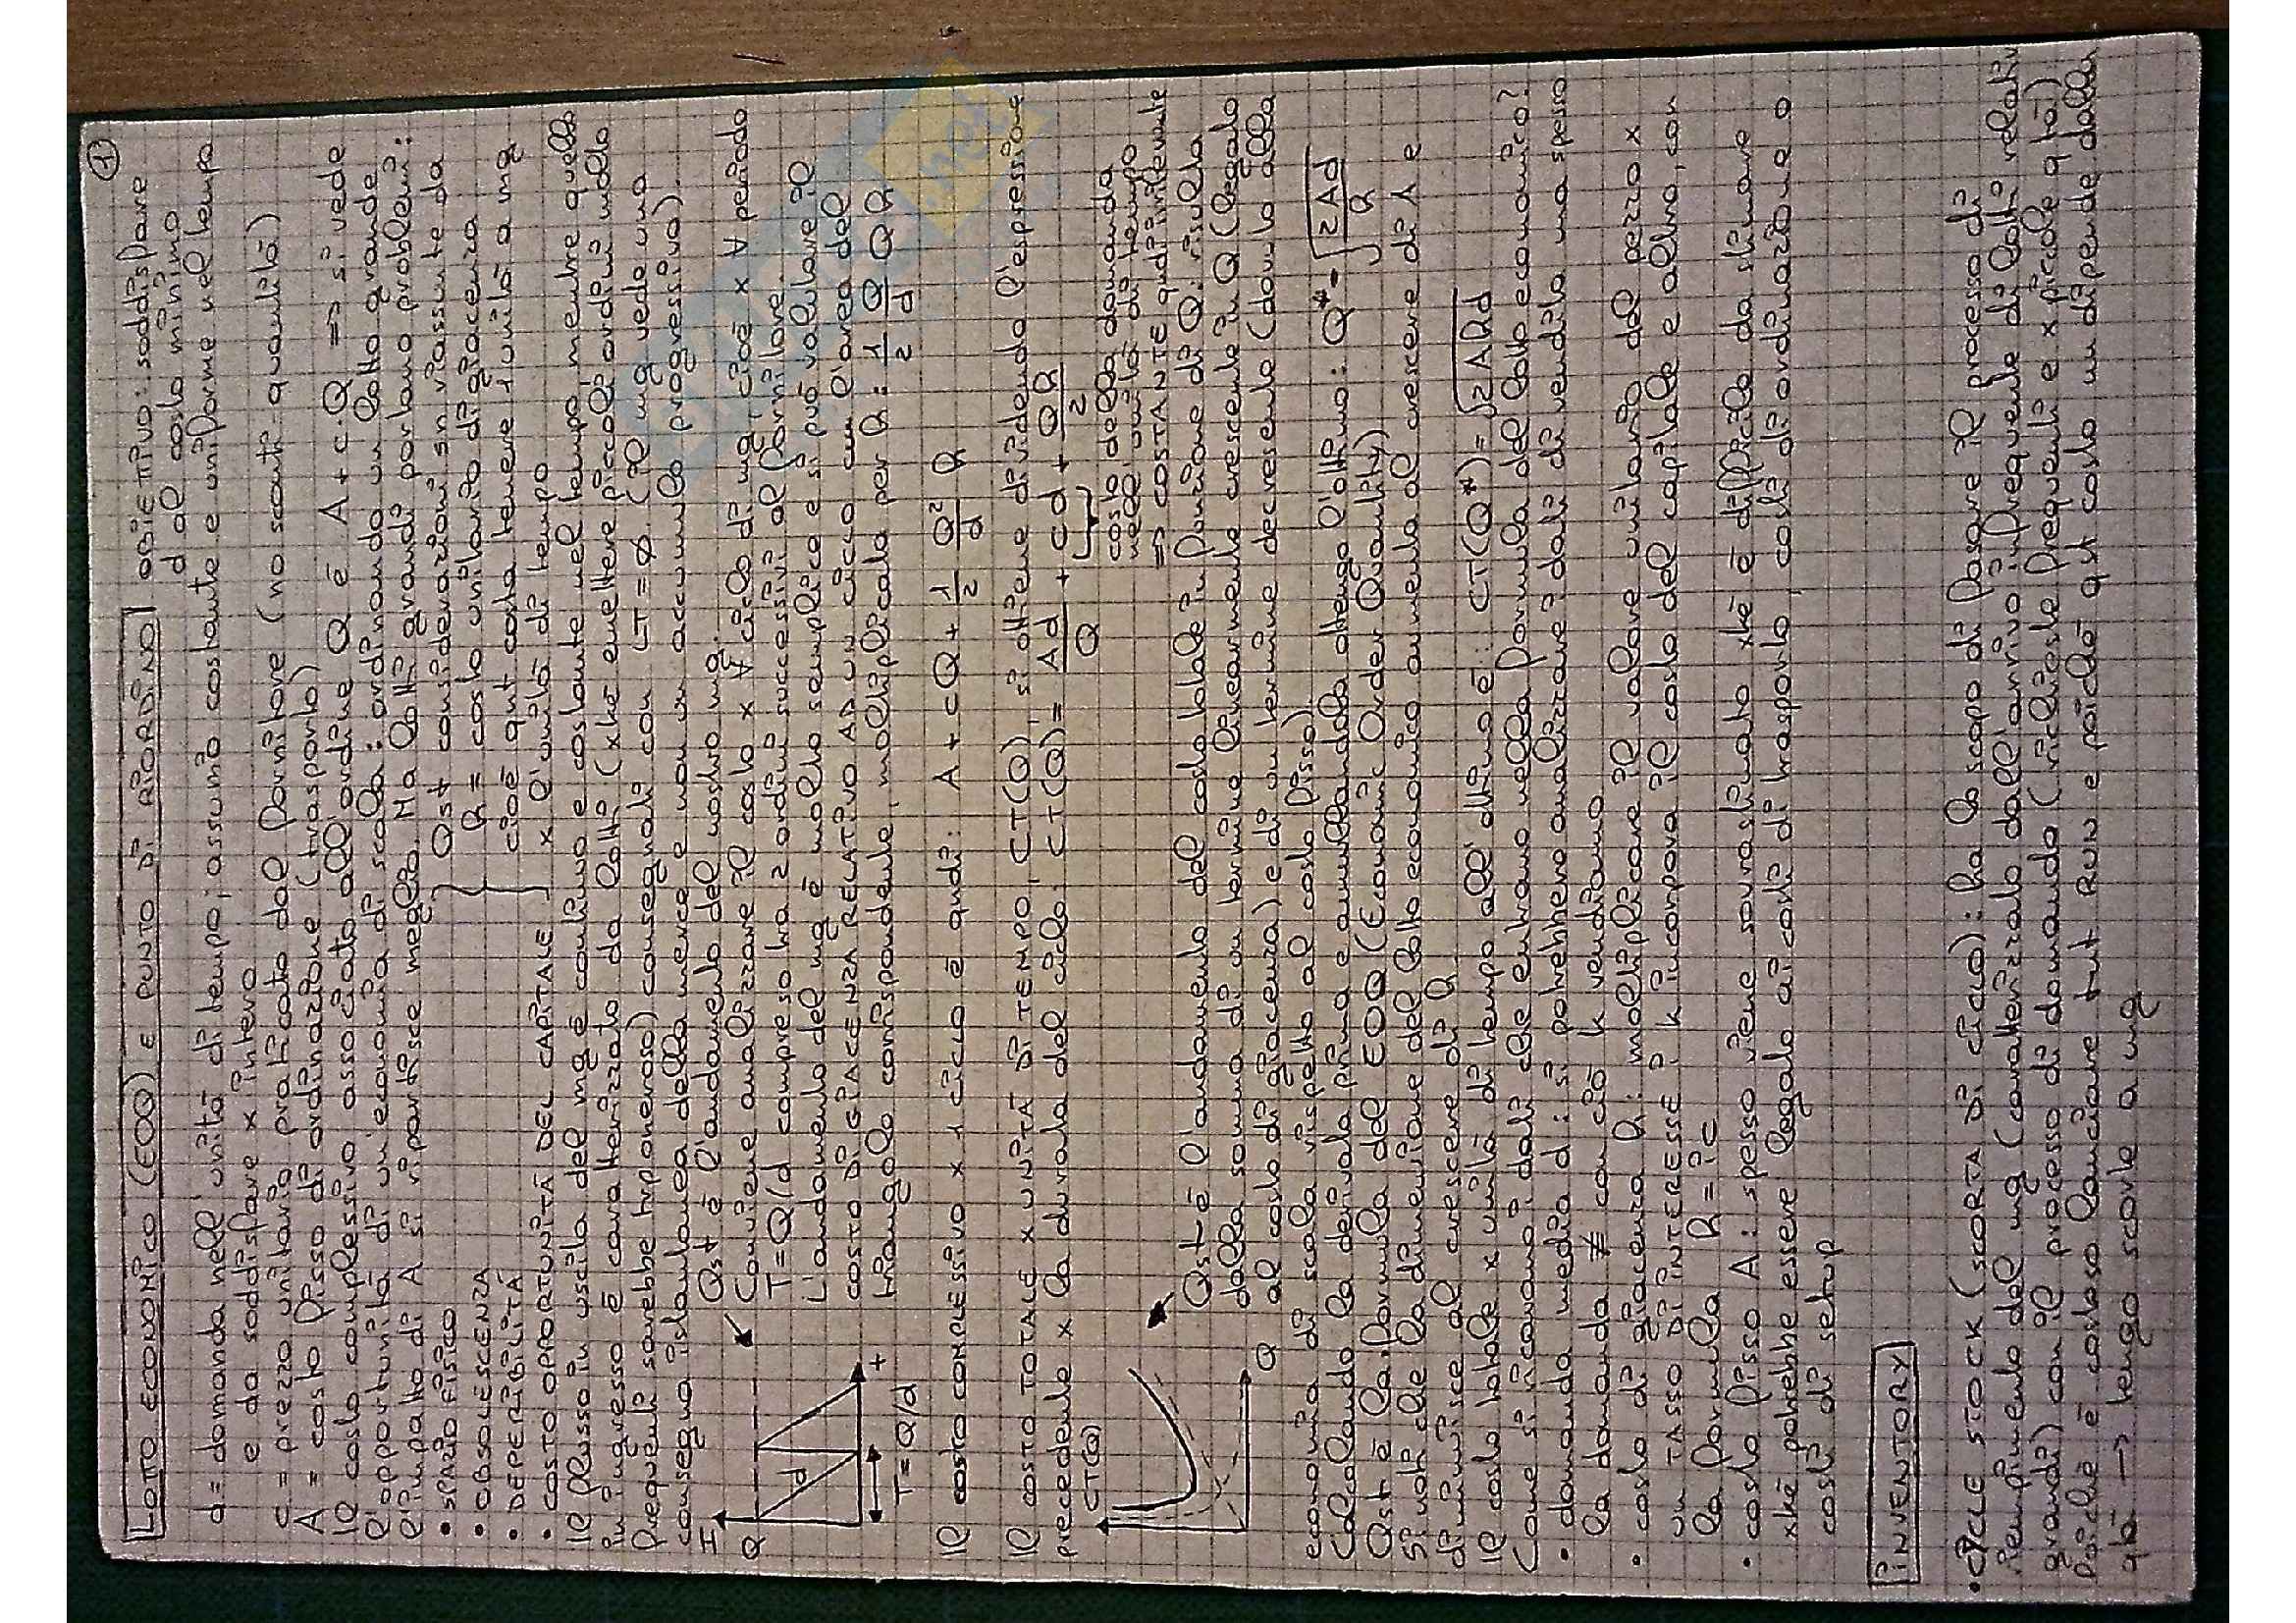 ①
LOTTO ECONOMICO (EOQ) E PUNTO DI RIORDINO | OBIETTIVO: soddisfare
d al costo minimo
d = domanda nell'unità di tempo; assumo costante e uniforme nel tempo
e da soddisfare x intero
c = prezzo unitario praticato dal fornitore (no sconti quantità)
A = costo fisso di ordinazione (trasporto)
Il costo complessivo associato all'ordine Q è A + c·Q => si vede
l'opportunità di un'economia di scala: ordinando un lotto grande
l'impatto di A si ripartisce meglio. Ma lotti grandi portano problemi:
• SPAZIO FISICO
• OBSOLESCENZA
• DEPERIBILITÀ
• COSTO OPPORTUNITÀ DEL CAPITALE
Qst considerazioni sn riassunte da
h = costo unitario di giacenza
cioè qnt costa tenere 1 unità a mg
x l'unità di tempo
Il flusso in uscita del mg è continuo e costante nel tempo mentre quello
in ingresso è caratterizzato da lotti (xké emettere piccoli ordini molto
frequenti sarebbe trp oneroso) consegnati con LT = 0 (il mg vede una
consegna istantanea della merce e non un accumulo progressivo).
Qst è l'andamento del nostro mg.
Conviene analizzare il costo x ∀ ciclo di mg, cioè x ∀ periodo
T = Q/d compreso tra 2 ordini successivi al fornitore.
L'andamento del mg è molto semplice e si può valutare il
COSTO DI GIACENZA RELATIVO AD UN CICLO cm l'area del
triangolo corrispondente, moltiplicata per h: 1/2 Q/d Q h
I
Q
d
t
T = Q/d
Il COSTO COMPLESSIVO x 1 CICLO è qndi: A + cQ + 1/2 Q²/d h
Il COSTO TOTALE x UNITÀ DI TEMPO, CT(Q), si ottiene dividendo l'espressione
precedente x la durata del ciclo: CT(Q) = Ad/Q + cd + Qh/2
costo della domanda
nell'unità di tempo
=> COSTANTE qndi ininfluente
CT(Q)
Q
Qst è l'andamento del costo totale in funzione di Q: risulta
dalla somma di un termine linearmente crescente in Q (legato
al costo di giacenza) e di un termine decrescente (dovuto alla
economia di scala rispetto al costo fisso).
Calcolando la derivata prima e annullandola ottengo l'ottimo: Q* = √2Ad/h
Qst è la formula del EOQ (Economic Order Quantity)
Si noti che la dimensione del lotto economico aumenta al crescere di A e
diminuisce al crescere di h
Il costo totale x unità di tempo all'ottimo è: CT(Q*) = √2Ahd
Come si ricavano i dati che entrano nella formula del lotto economico?
• domanda media d: si potrebbero analizzare i dati di vendita ma spesso
la domanda ≠ con ciò k vendiamo
• costo di giacenza h: moltiplicare il valore unitario del pezzo x
un TASSO DI INTERESSE i k incorpora il costo del capitale e altro, con
la formula h = ic
• costo fisso A: spesso viene sovrastimato xké è difficile da stimare
xké potrebbe essere legato ai costi di trasporto, costi di ordinazione o
costi di setup
INVENTORY
• CYCLE STOCK (SCORTA DI CICLO): ha lo scopo di fasare il processo di
riempimento del mg (caratterizzato dall'arrivo infrequente di lotti relativ
grandi) con il processo di domanda (richieste frequenti e x piccole qtà)
Poiché è costoso lanciare tnt RUN e poiché qst costo nn dipende dalla
qtà → tengo scorte a mg